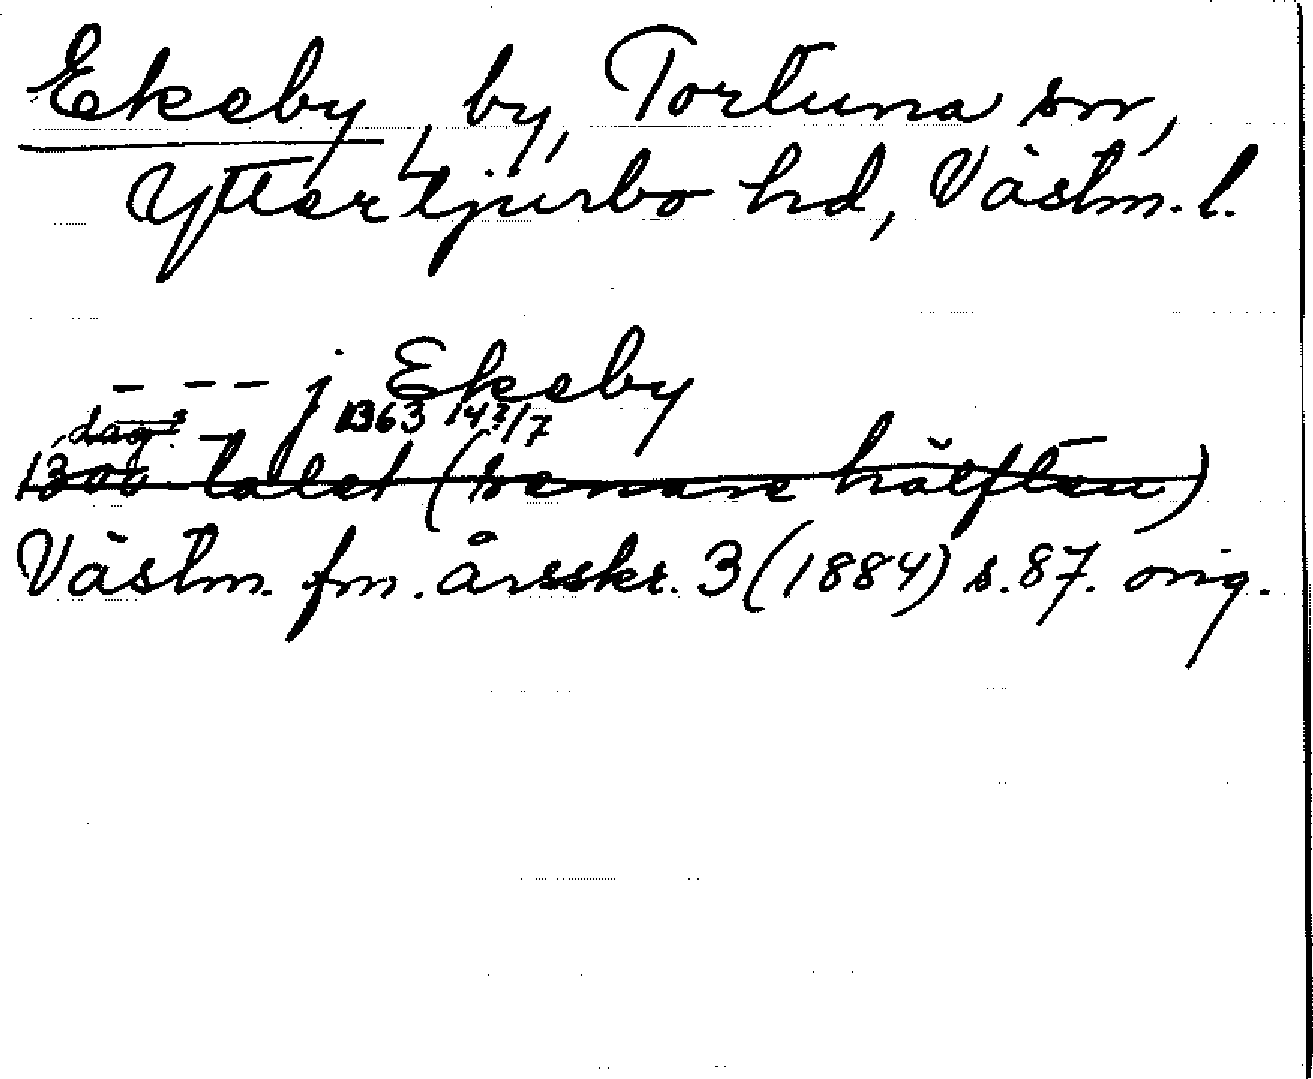 Ekeby, by, Tortuna sn,
Yttertjurbo hd, Västm. l.
- - - j Ekeby
dag? 1363 14 7/7
1300-talet (senare hälften)
Västm. fm. årsskr. 3 (1884) s. 87. orig.